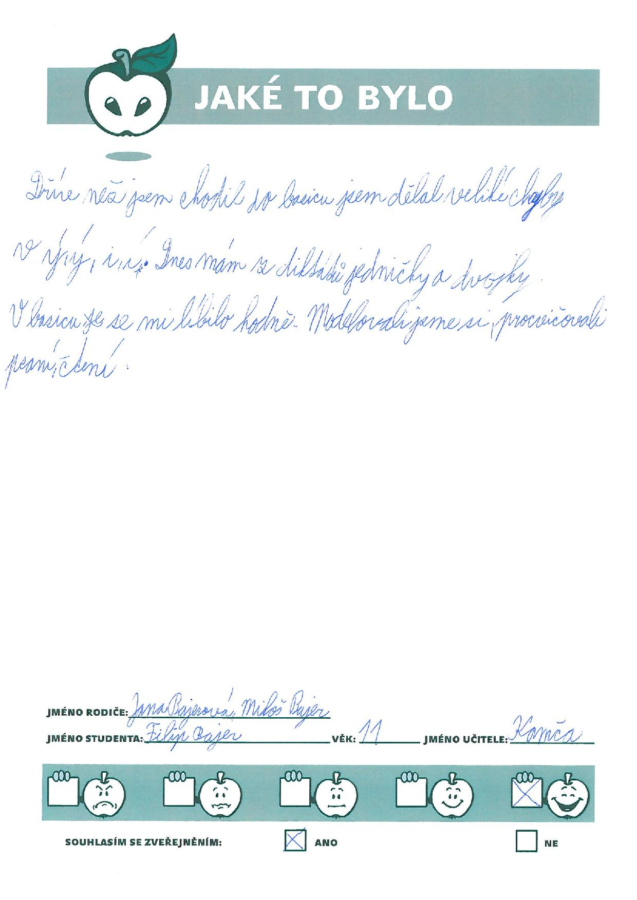 JAKÉ TO BYLO
Dříve než jsem chodil do basicu jsem dělal veliké chyby
v ý,y, i, í. Dnes mám z diktátů jedničky a dvojky.
V basicu je se mi líbilo hodně. Modelovali jsme si, procvičovali
psaní, čtení.
JMÉNO RODIČE: Jana Pajerová, Miloš Pajer
JMÉNO STUDENTA: Filip Pajer VĚK: 11 JMÉNO UČITELE: Kamča
SOUHLASÍM SE ZVEŘEJNĚNÍM: ANO NE